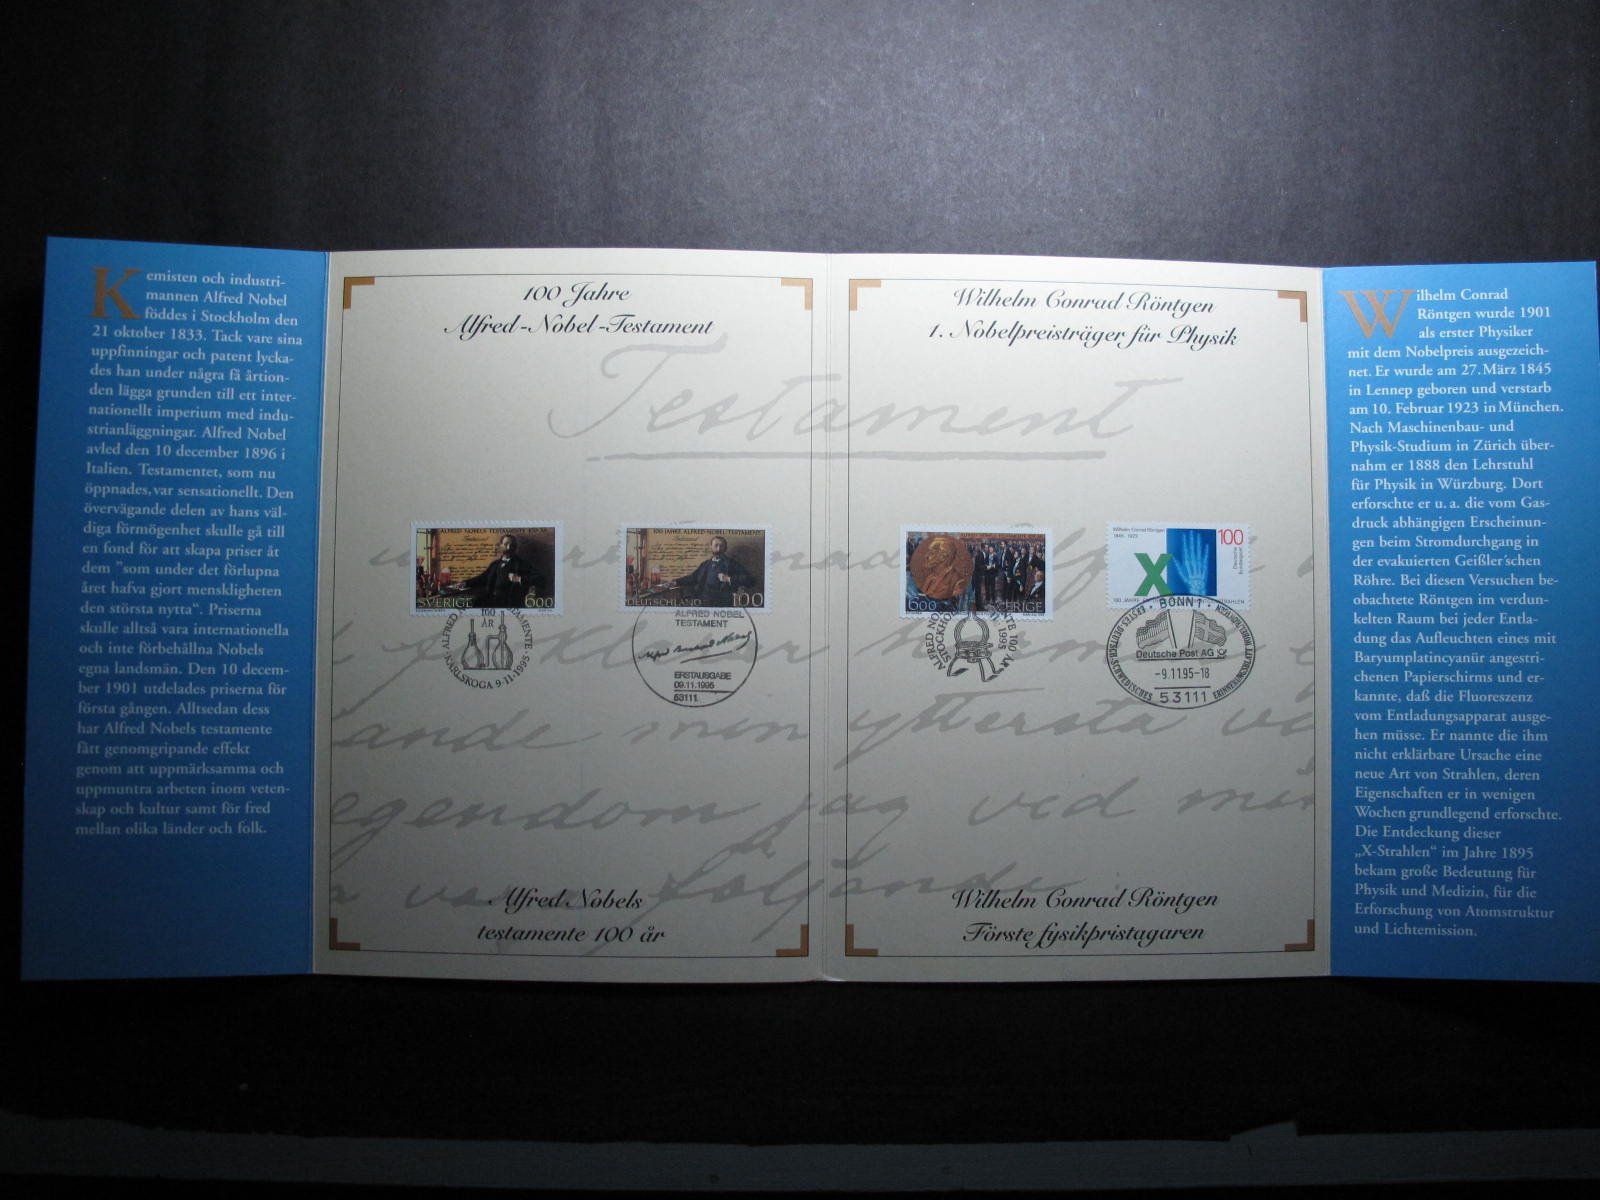 Kemisten och industri-
mannen Alfred Nobel
föddes i Stockholm den
21 oktober 1833. Tack vare sina
uppfinningar och patent lycka-
des han under några få årtion-
den lägga grunden till ett inter-
nationellt imperium med indu-
strianläggningar. Alfred Nobel
avled den 10 december 1896 i
Italien. Testamentet, som nu
öppnades, var sensationellt. Den
övervägande delen av hans väl-
diga förmögenhet skulle gå till
en fond för att skapa priser åt
dem "som under det förlupna
året hafva gjort menskligheten
den största nytta“. Priserna
skulle alltså vara internationella
och inte förbehållna Nobels
egna landsmän. Den 10 decem-
ber 1901 utdelades priserna för
första gången. Alltsedan dess
har Alfred Nobels testamente
fått genomgripande effekt
genom att uppmärksamma och
uppmuntra arbeten inom veten-
skap och kultur samt för fred
mellan olika länder och folk.
100 Jahre
Alfred-Nobel-Testament
Testament
SVERIGE 600
100 JAHRE ALFRED-NOBEL-TESTAMENT
DEUTSCHLAND 100
100
ÅR
KARLSKOGA 9-11-1995
ALFRED NOBEL
TESTAMENT
ERSTAUSGABE
09.11.1995
53111
ande men yttersta
egendom jag ved min
följande
Alfred Nobels
testamente 100 år
Wilhelm Conrad Röntgen
1. Nobelpreisträger für Physik
600 SVERIGE
Wilhelm Conrad Röntgen
1845-1923
100
Deutsche
Bundespost
X
BONN 1
Deutsche Post AG
-9.11.95-18
53111
ERSTES DEUTSCH-SCHWEDISCHES ERINNERUNGSBLATT
Wilhelm Conrad Röntgen
Förste fysikpristagaren
Wilhelm Conrad
Röntgen wurde 1901
als erster Physiker
mit dem Nobelpreis ausgezeich-
net. Er wurde am 27. März 1845
in Lennep geboren und verstarb
am 10. Februar 1923 in München.
Nach Maschinenbau- und
Physik-Studium in Zürich über-
nahm er 1888 den Lehrstuhl
für Physik in Würzburg. Dort
erforschte er u. a. die vom Gas-
druck abhängigen Erscheinun-
gen beim Stromdurchgang in
der evakuierten Geißler'schen
Röhre. Bei diesen Versuchen be-
obachtete Röntgen im verdun-
kelten Raum bei jeder Entla-
dung das Aufleuchten eines mit
Baryumplatincyanür angestri-
chenen Papierschirms und er-
kannte, daß die Fluoreszenz
vom Entladungsapparat ausge-
hen müsse. Er nannte die ihm
nicht erklärbare Ursache eine
neue Art von Strahlen, deren
Eigenschaften er in wenigen
Wochen grundlegend erforschte.
Die Entdeckung dieser
„X-Strahlen“ im Jahre 1895
bekam große Bedeutung für
Physik und Medizin, für die
Erforschung von Atomstruktur
und Lichtemission.